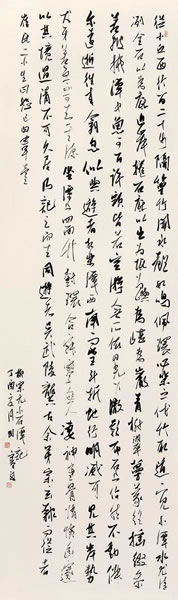 從小丘西百二十步隔篁竹聞水聲如鳴佩環心樂之伐竹取道下見小潭水尤清
冽全石以為底近岸卷石底以出為坻為嶼為嵁為巖青樹翠蔓蒙絡搖綴參
差披拂潭中魚可百許頭皆若空遊無所依日光下澈影布石上佁然不動俶
尔遠逝往來翕忽似與遊者相樂潭西南而望斗折蛇行明滅可見其岸勢
犬牙差互不可知其源坐潭上四面竹樹環合寂寥無人淒神寒骨悄愴幽邃
以其境過清不可久居乃記之而去同遊者吳武陵龔古余弟宗玄隸而從者
崔氏二小生曰恕己曰奉壹
柳宗元小石潭記
丁酉月